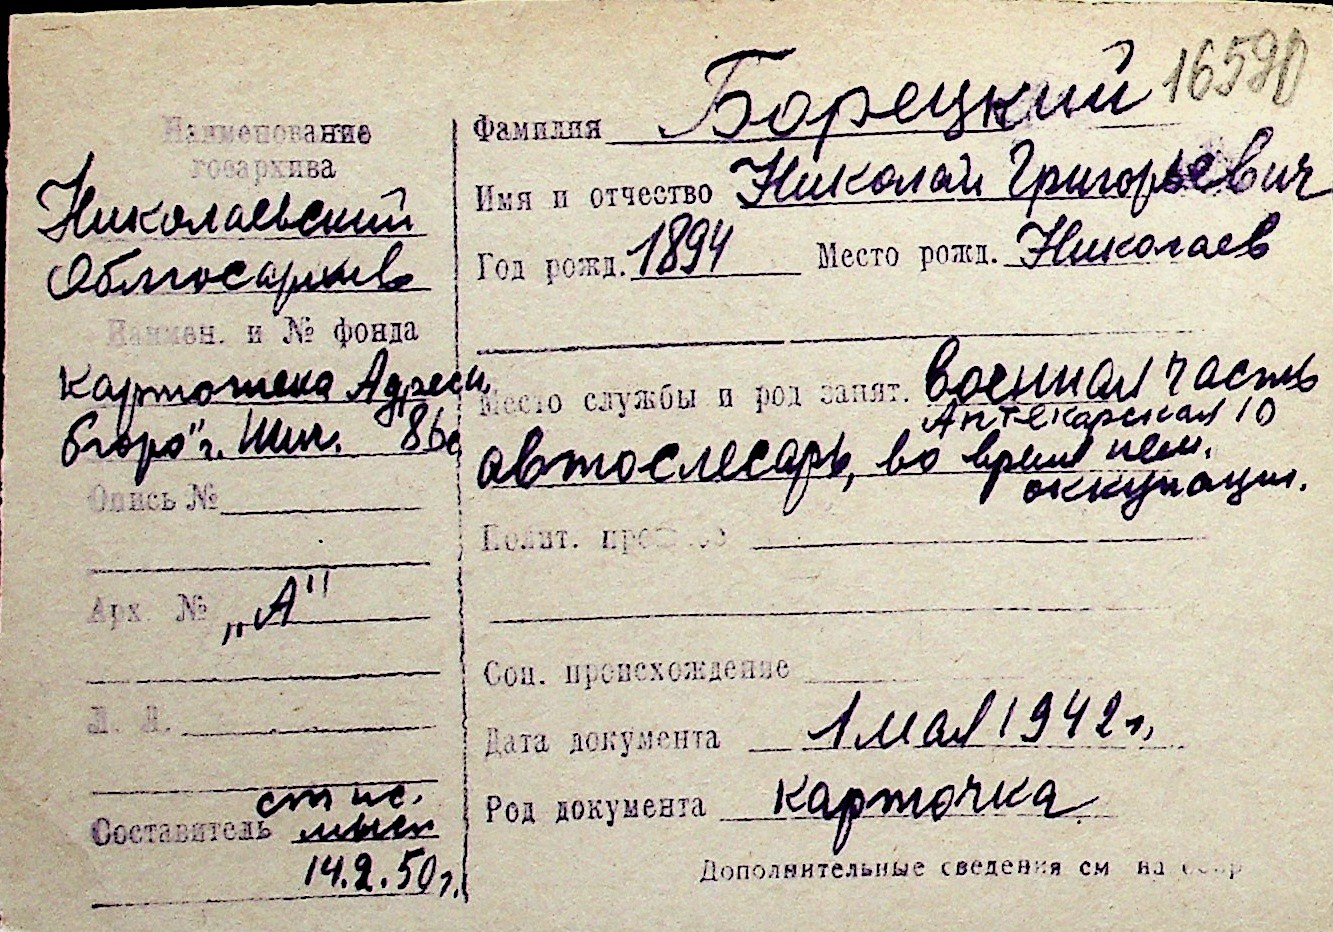 16590
Наименование
госархива
Николаевский
Облгосархив
Наимен. и № фонда
картотека Адресн.
бюро" г. Ник. 86с
Опись №
Арх. № „А"
Л. Л.
Составитель ст. ис.
14.2.50г.
Фамилия Борецкий
Имя и отчество Николай Григорьевич
Год рожд. 1894 Место рожд. Николаев
Место службы и род занят. военная часть
Аптекарская 10
автослесарь, во время нем.
оккупации.
Полит. прошлое
Соц. происхождение
Дата документа 1 мая 1942 г.
Род документа карточка
Дополнительные сведения см на обор